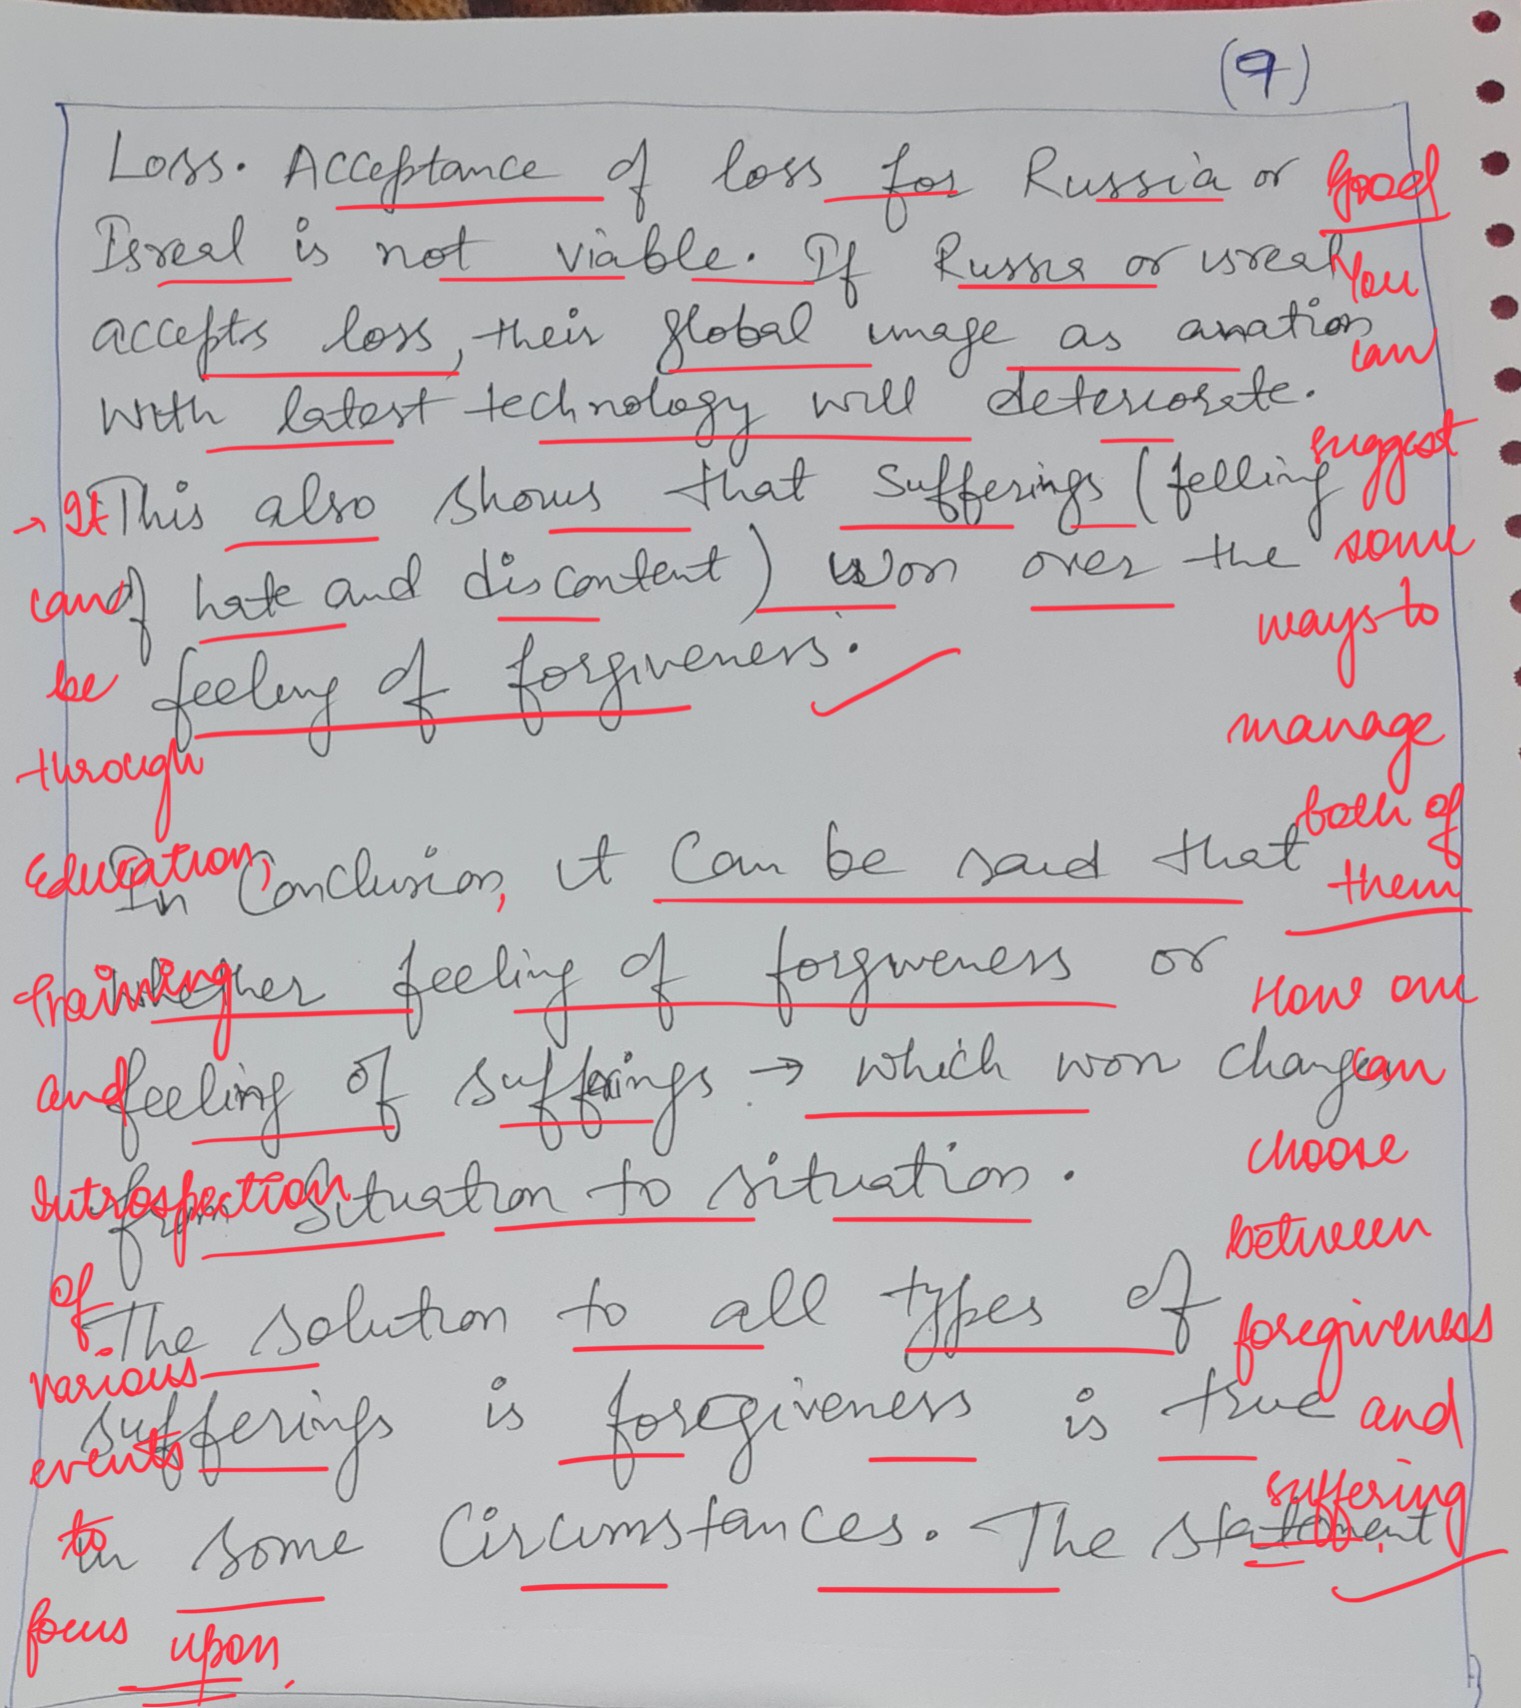 (9)
Loss. Acceptance of loss for Russia or
Isreal is not viable. If Russia or isreal
accepts loss, their global image as a nation
with latest technology will deteriorate.
This also shows that sufferings (felling
of hate and discontent) won over the
feeling of forgiveness.
In Conclusion, it can be said that
whether feeling of forgiveness or
feeling of sufferings → which won changes
from situation to situation.
The solution to all types of
sufferings is foregiveness is true
in some circumstances. The statement
Good
You
can
suggest
some
ways to
manage
both of
them
How one
can
choose
between
foregiveness
and
suffering
→ It
can
be
through
Education,
Training
and
Introspection
of
various
events
to
focus upon.